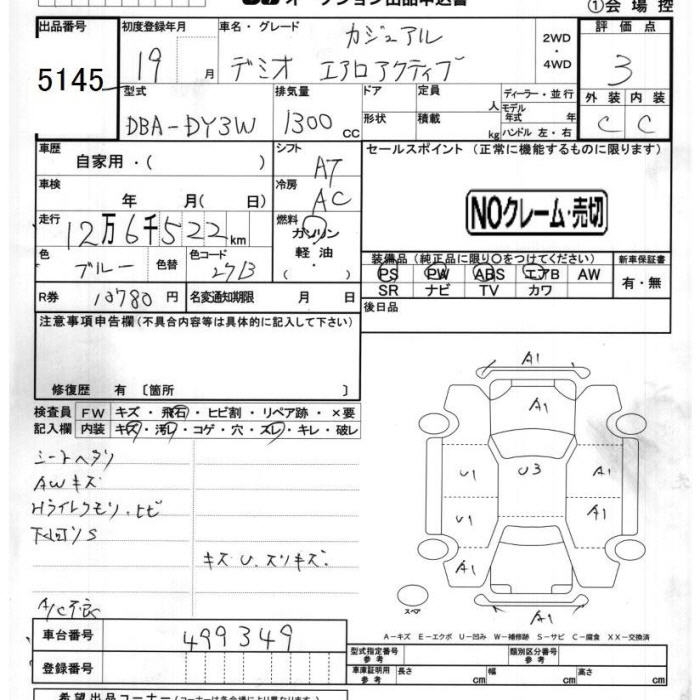 オークション出品申込書
①会場控
出品番号 初度登録年月 車名・グレード 評価点
5145 19 月 カジュアル 2WD・4WD 3
デミオ エアロアクティブ
型式 排気量 ドア 定員 人 ディーラー・並行 外装 内装
DBA-DY3W 1300 CC 形状 積載 kg モデル年式 年 ハンドル 左・右 C C
車歴 自家用・( ) シフト AT セールスポイント (正常に機能するものに限ります)
車検 年 月( 日) 冷房 AC
NOクレーム・売切
走行 12万6千522km 燃料 ガソリン 軽油・( )
色 ブルー 色替 色コード 27B 装備品 (純正品に限り○をつけてください) 新車保証書
PS PW ABS エアB AW 有・無
SR ナビ TV カワ
R券 10780円 名変通知期限 月 日 後日品
注意事項申告欄(不具合内容等は具体的に記入して下さい)
修復歴 有 〔箇所 〕
検査員 FW キズ・飛石・ヒビ割・リペア跡・×要
記入欄 内装 キズ・汚レ・コゲ・穴・スレ・キレ・破レ
シートヘタリ
AWキズ
Hライトクモリ・ヒビ
下回リS
キズ U. スリキズ.
A/C不良
A1
A1
U1 U3 A1
U1 A1
A1
A1
スペア
A-キズ E-エクボ U-凹み W-補修跡 S-サビ C-腐食 XX-交換済
車台番号 499349
型式指定番号 参考 類別区分番号 参考
登録番号 車庫証明用 参考 長さ cm 幅 cm 高さ cm
希望出品コーナー(コーナーは各会場により異なります。)